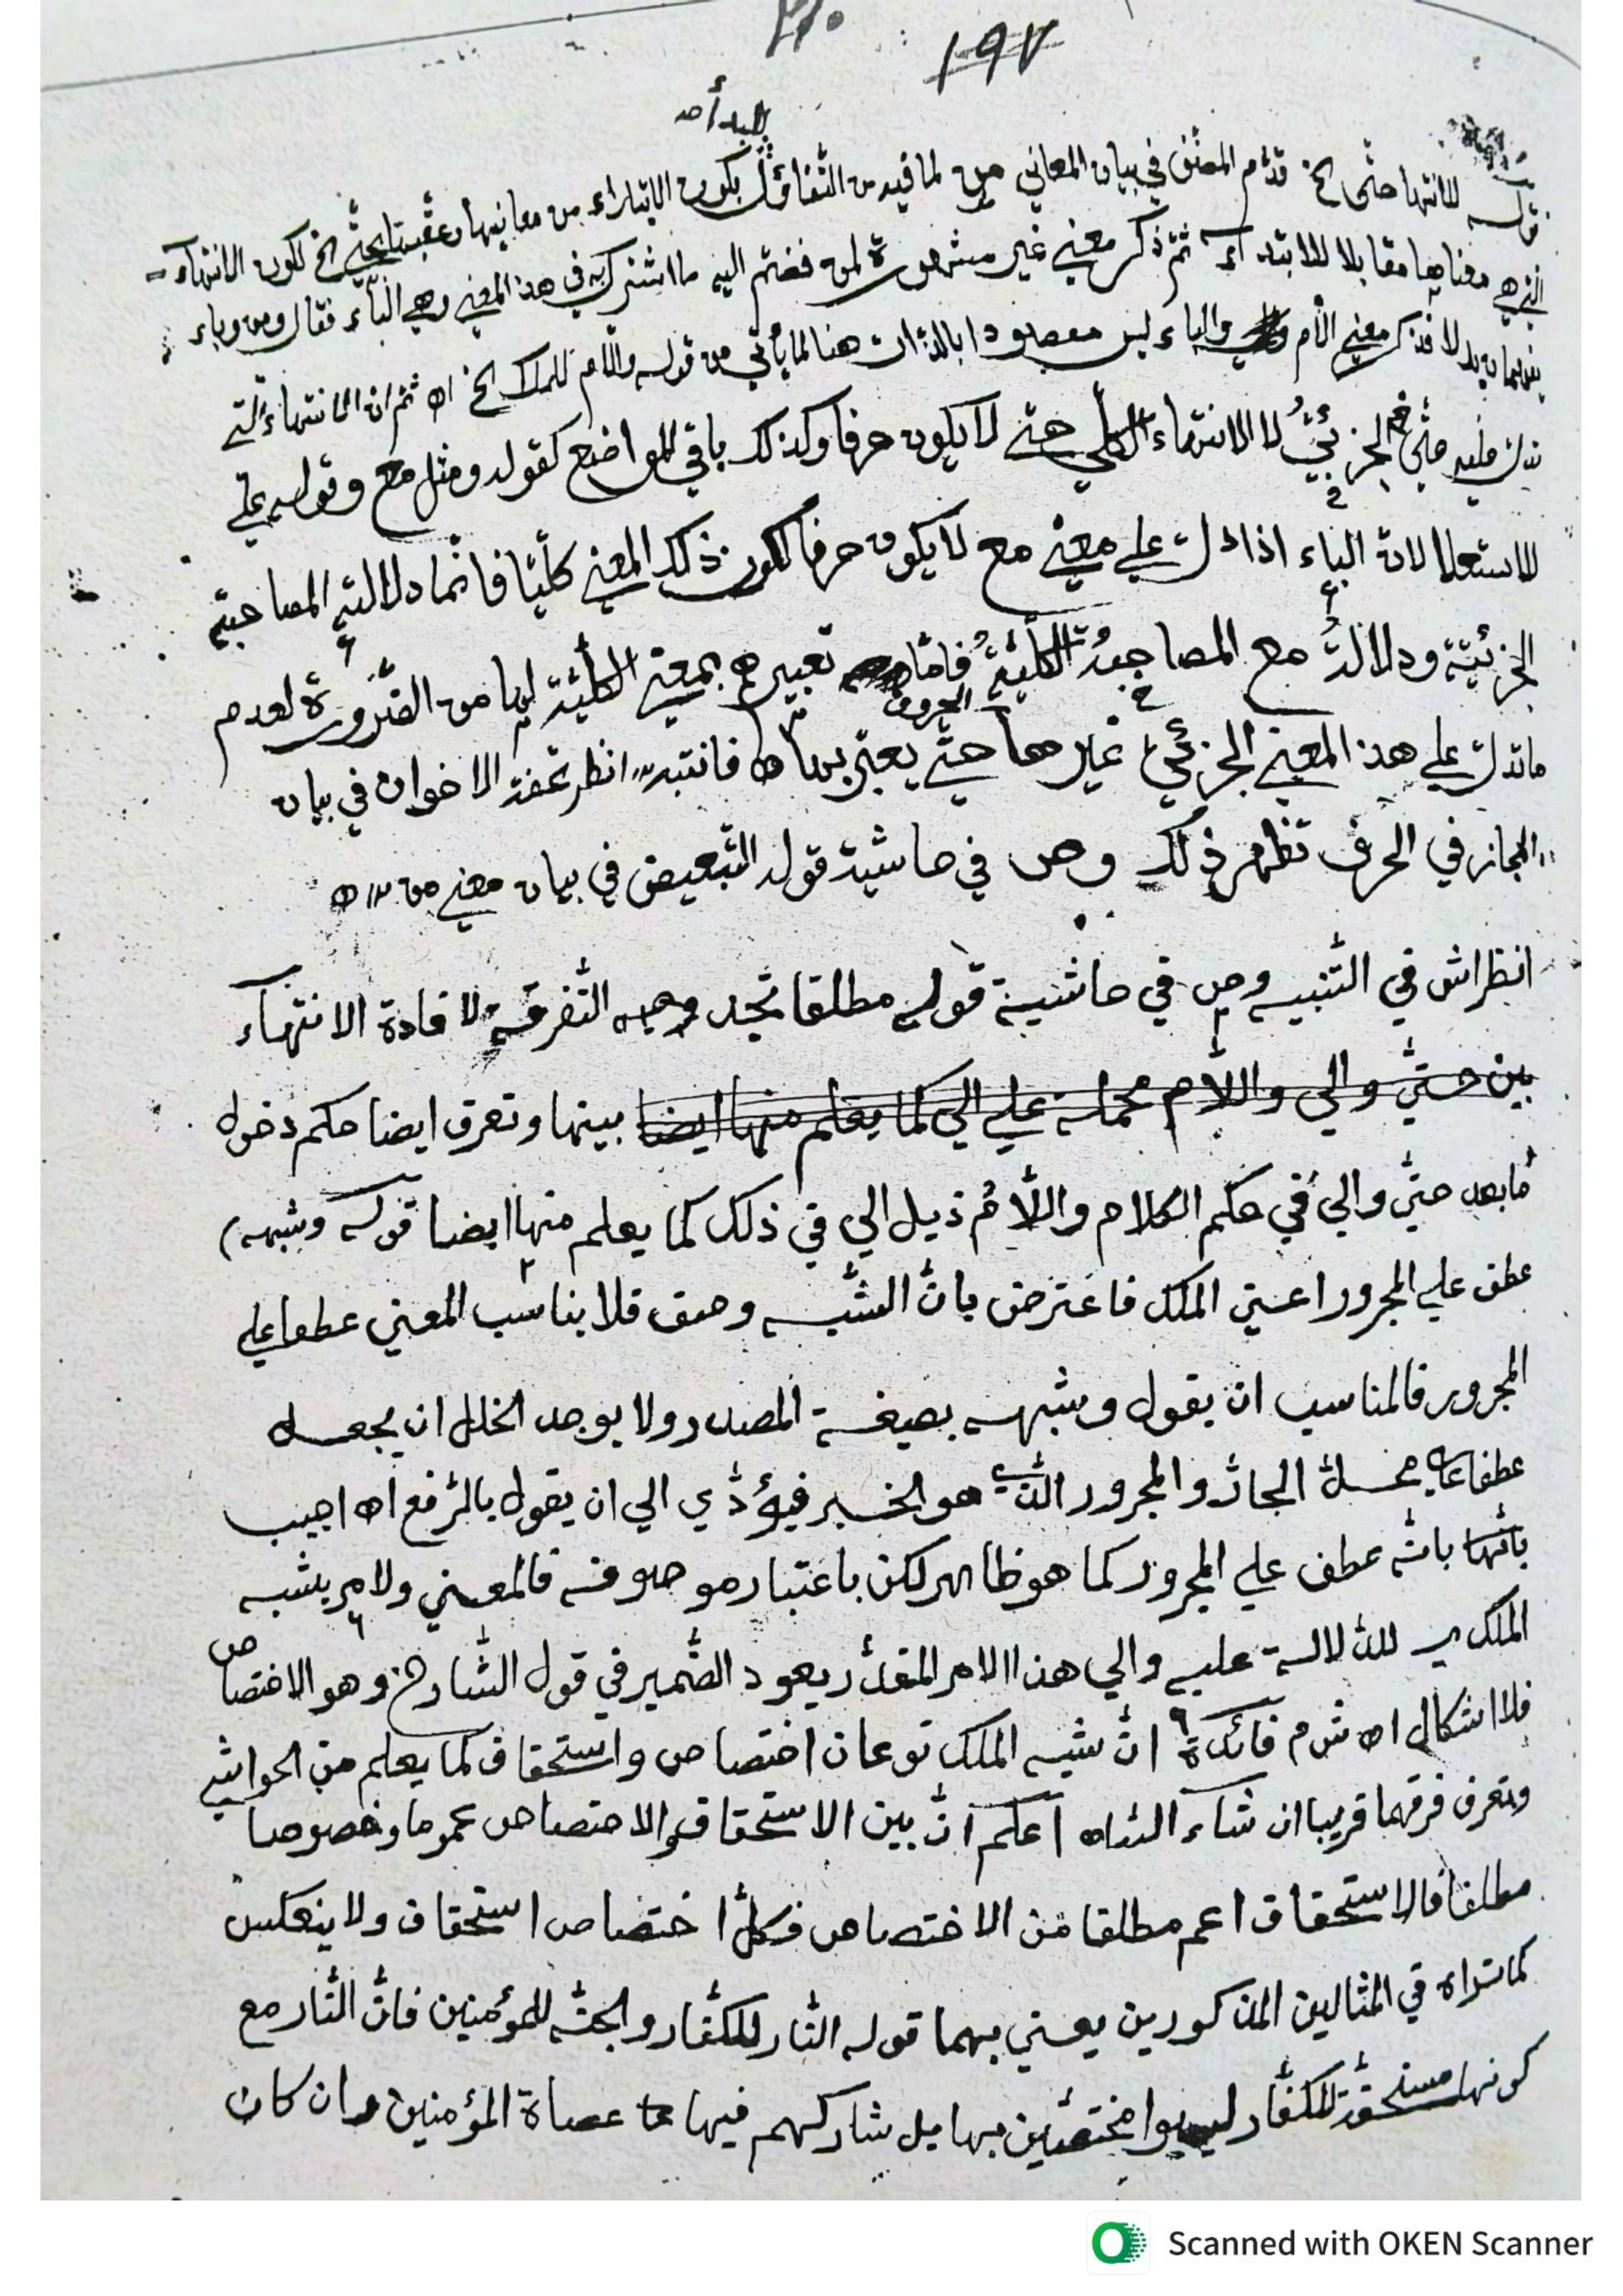 ١٩٧
للبدأ صـ
قوله للانتها حتى الخ قدم المصنف في بيان المعاني من لما فيه من التفاؤل بكون الابتداء من معانيها وعقبها بحتى الخ لكون الانتهاء
الذي هو معناها مقابلا للابتداء ثم ذكر معنى غير مشهور لمن فضم اليه ما اشترك به في هذا المعنى وهي الباء فقال ومن وباء
يفهمان بدلا فذكر معنى اللام والباء ليس مقصودا بالذات هنا لما يأتي من قوله واللام للملك الخ اه ثم ان الانتهاء التي
تدل عليه حتى الجزئي لا الانتهاء الكلي حتى لا يكون حرفا وكذلك باقي المواضع كقوله ومثل مع وقوله على
للاستعلا لان الباء اذا دلت على معنى مع لا يكون حرفا لكون ذلك المعنى كليا فانما دلالته المصاحبة
الجزئية ودلالة مع المصاحبة الكلية فاما تعبيرهم بمعنى الكلية لها من الضرورة لعدم
الحروف
ما تدل على هذا المعنى الجزئي غيرها حتى يعبر بها اه فانتبه انظر تحفة الاخوان في بيان
المجاز في الحرف تظهر ذلك وص في حاشية قوله التبعيض في بيان معنى من اه
انظر اش في التنبيه وص في حاشية قوله مطلقا تجد وجه التفرقة لافادة الانتهاء
بين حتى والى واللام محملة على الى كما يعلم منها ايضا بينها وتعرف ايضا حكم دخول
ما بعد حتى والى في حكم الكلام واللام ذيل الى في ذلك كما يعلم منها ايضا قوله وشبهه)
عطف على المجرور اعني الملك فاعترض بان الشبه وصف فلا يناسب المعنى عطفا على
المجرور فالمناسب ان يقول وشبهه بصيغة المصدر ولا يوجد الخلل ان يجعل
عطفا على محل الجار والمجرور الذي هو الخبر فيؤدي الى ان يقول بالرفع اه اجيب
بانها بانه عطف على المجرور كما هو ظاهر لكن باعتبار موصوفه فالمعنى ولامر يشبه
الملك للدلالة عليه والى هذا الامر المقدر يعود الضمير في قول الشارح وهو الاختصاص
فلا اشكال اه شرم فائدة ان شبه الملك نوعان اختصاص واستحقاق كما يعلم من الحواشي
وتعرف فرقهما قريبا ان شاء الله اه اعلم ان بين الاستحقاق والاختصاص عموما وخصوصا
مطلقا فالاستحقاق اعم مطلقا من الاختصاص فكل اختصاص استحقاق ولا ينعكس
كما تراه في المثالين المذكورين يعني بهما قوله النار للكفار والجنة للمؤمنين فان النار مع
كونها مستحقة للكفار ليسوا مختصين بها بل شاركهم فيها عصاة المؤمنين وان كان
Scanned with OKEN Scanner